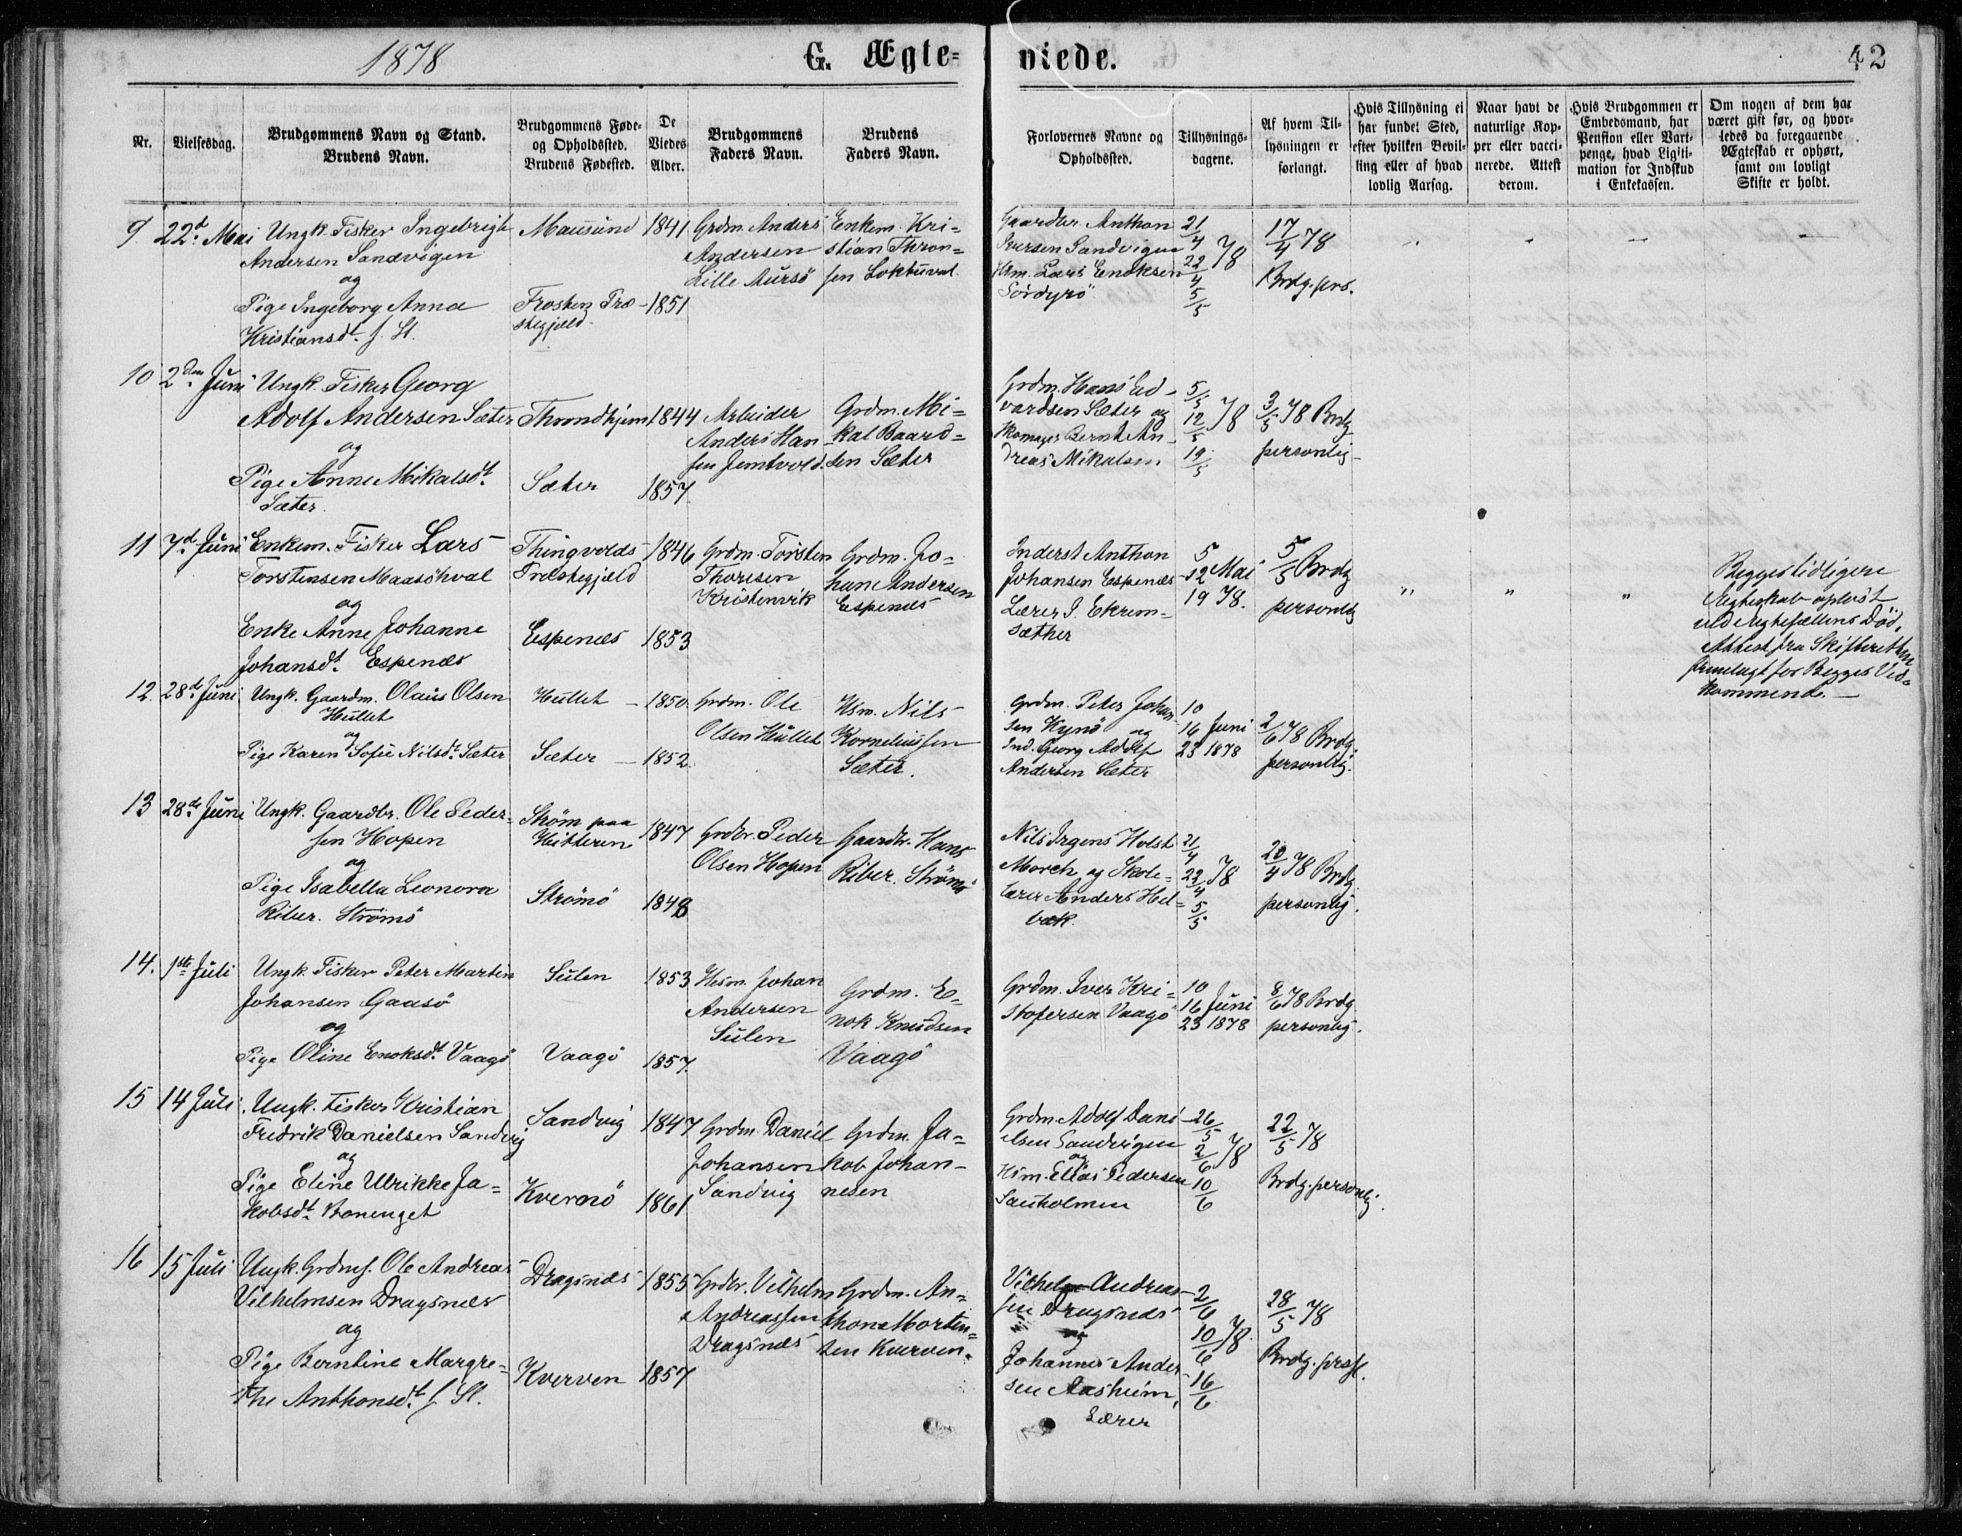 1878
G. Ægte-
viede.
42
Nr.
Vielsesdag.
Brudgommens Navn og Stand.
Brudens Navn.
Brudgommens Føde-
og Opholdsted.
Brudens Fødested.
De
Viedes
Alder.
Brudgommens
Faders Navn.
Brudens
Faders Navn.
Forlovernes Navne og
Opholdssted.
Tillysnings-
dagene.
Af hvem Til-
lysningen er
forlangt.
Hvis Tillysning ei
har fundet Sted,
efter hvilken Bevil-
ling eller af hvad
lovlig Aarsag.
Naar havt de
naturlige Kop-
per eller vacci-
nerede. Attest
derom.
Hvis Brudgommen er
Embedsmand, har
Pension eller Vart-
penge, hvad Ligiti-
mation for Indskud
i Enkekassen.
Om nogen af dem har
været gift før, og hvor-
ledes da foregaaende
Ægteskab er ophørt,
samt om lovligt
Skifte er holdt.
9. 22d. Mai
Ungk. Fisker Ingebrigt
Andersen Sandvigen
og
Pige Ingeborg Anna
Kristiansdt. f. St.
Mausund
Frosten Præ-
stegjeld
1841
1851
Grdm Anders
Andersen
Lille Aursø
Enkem. Kri-
stian Thron-
sen
Gaardbr. Anthon
Iversen Sandvigen
Hsm. Lars Enoksen
Sørdyrø
21/4
22/4 78
5/5
17/4 78
Brdg. prs.
10 2den Juni
Ungk. Fisker Georg
Adolf Andersen Sæter
og
Pige Anne Mikalsdt.
Sæter.
Throndhjem
Sæter
1844
1857
Arbeider
Anders Han-
sen
Grdm. Mi-
kal Baard-
sen Sæter
Grdm. Hans Ed-
vardsen Sæter og
Skomager Bernt An-
dreas Mikalsen
5/5
12/5 78
19/5
3/5 78 Brdg
personlig
11 7d. Juni
Enkem. Fisker Lars
Torstensen Maasøhval
og
Enke Anne Johanne
Johansdt. Espenæs
Thingvolds
Prestegjæld
Espenæs
1846
1853
Grdm. Torsten
Thoresen
Kristenvik
Grdm. Jo-
han Andersen
Espenæs
Inderst Anthon
Johansen Espenæs
Lærer J. Ekrem-
sæther
5
12 Mai
19 78.
5/5 Brdg
personlig
" " "
Begges tidligere
Ægteskab opløst
ved Ægtefællens Død,
Attest fra Skifteretten
fremlagt for Begges Ved-
kommende. —
12. 28d. Juni
Ungk. Gaardm. Olaus Olsen
Hullet
og
Pige Karen Sofie Nilsdt. Sæter
Hullet
Sæter
1850.
1852.
Grdm. Ole
Olsen Hullet
Hsm. Nils
Korneliussen
Sæter.
Grdm. Peter Johan-
sen Kynø og
Ind. Georg Adolf
Andersen Sæter
10
16 Juni
23 1878
2/6 78 Brdg.
personlig.
13 28de Juni
Ungk. Gaardbr. Ole Peder-
sen Hopen
og
Pige Isabella Leonora
Riber. Strømø
Strøm paa
Hitteren
Strømø
1847
1848
Grdbr. Peder
Olsen Hopen
Gaardbr. Hans
Riber. Strømø
Nils Irgens Holst
Morch og Skole-
lærer Anders Hel-
bæk.
21/4
22/4 78
5/5
20/4 78 Brdg.
personlig.
14. 1ste Juli
Ungk. Fisker Peter Martin
Johansen Gaasø
og
Pige Oline Enoksdt. Vaagø
Sulen
Vaagø
1853
1857.
Hsm. Johan
Andersen
Sulen
Grdm. E-
nok Knudsen
Vaagø
Grdm. Iver Kri-
stofersen Vaagø
10
16 Juni
23 1878
8/6 78 Brdg
personlig.
15 14 Juli
Ungk. Fisker Kristian
Fredrik Danielsen Sandvig
og
Pige Eline Ulrikke Ja-
kobsdt.
Sandvig
Kvernø
1847
1861
Grdm. Daniel
Johansen
Sandvig
Grdm. Ja-
kob Johan-
nesen
Grdm. Adolf Dani-
elsen Sandvigen
og
Hsm. Elias Pedersen
Sauholmen
26/5
2/6 78
10/6
22/5 78
Brdg. personlig.
16 15 Juli
Ungk. Grdms. Ole Andreas
Vilhelmsen Dragsnes
og
Pige Berntine Margre-
the Anthonsdt. f St.
Dragsnes
Kverven
1855
1857
Grdbr. Vilhelm
Andreassen
Dragsnæs
Grdm. An-
thon Morten-
sen Kverven.
Vilhelm Andreas-
sen Dragsnæs
og
Johannes Ander-
sen Aasheim,
Lærer
2/6
10/6 78.
16/6
28/5 78
Brdg. prsl.